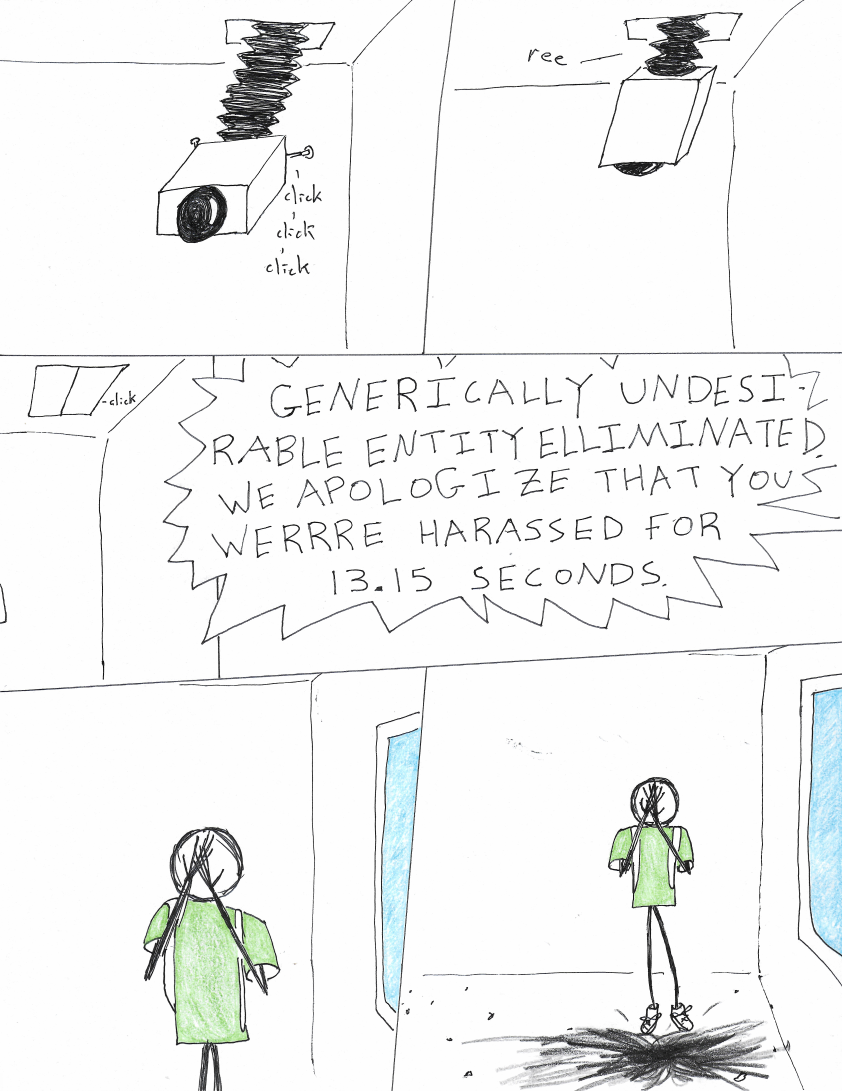 click
click
click
ree
click
GENERICALLY UNDESI-
RABLE ENTITY ELLIMINATED.
WE APOLOGIZE THAT YOU
WERRRE HARASSED FOR
13.15 SECONDS.